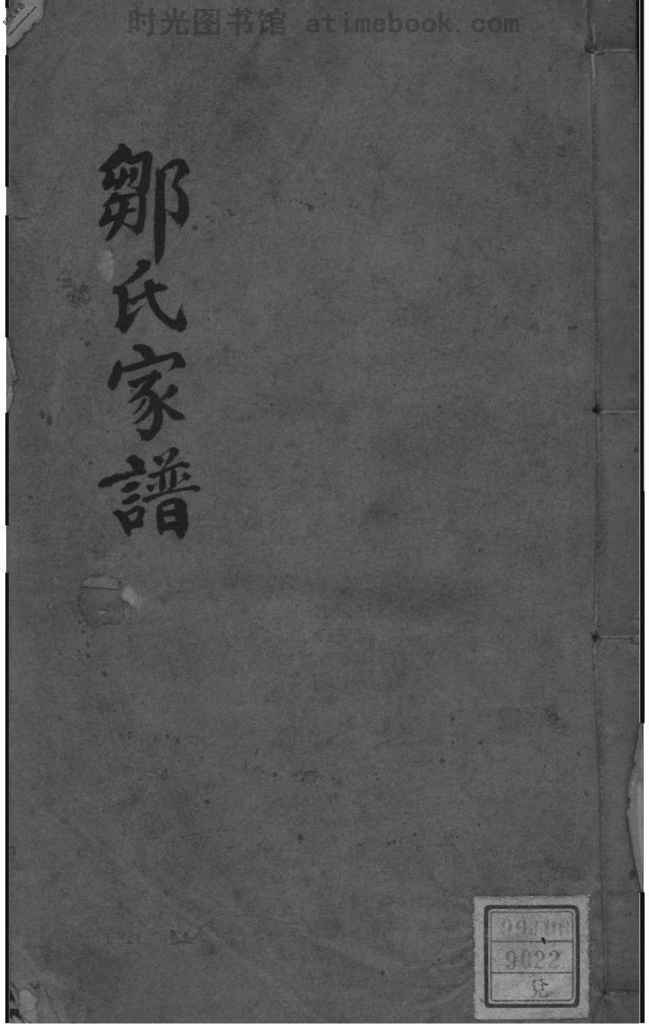 时光图书馆 atimebook.com
鄒氏家譜
9022